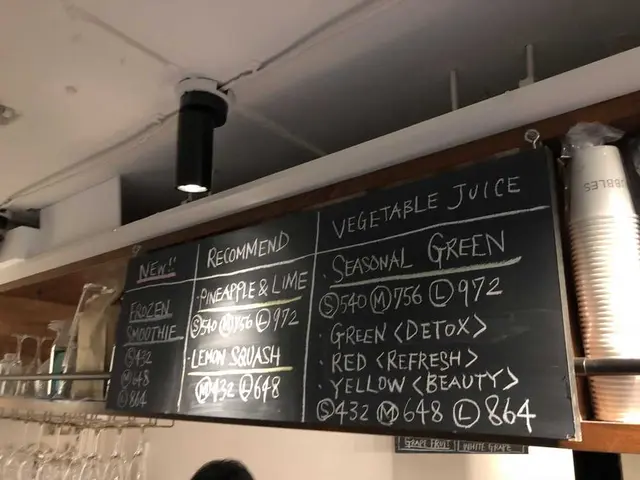 NEW!!
FROZEN
SMOOTHIE
Ⓢ432
Ⓜ648
Ⓛ864
RECOMMEND
・PINEAPPLE & LIME
Ⓢ540 Ⓜ756 Ⓛ972
・LEMON SQUASH
Ⓜ432 Ⓛ648
VEGETABLE JUICE
・SEASONAL GREEN
Ⓢ540 Ⓜ756 Ⓛ972
・GREEN <DETOX>
・RED <REFRESH>
・YELLOW <BEAUTY>
Ⓢ432 Ⓜ648 Ⓛ864
GRAPE FRUIT
WHITE GRAPE